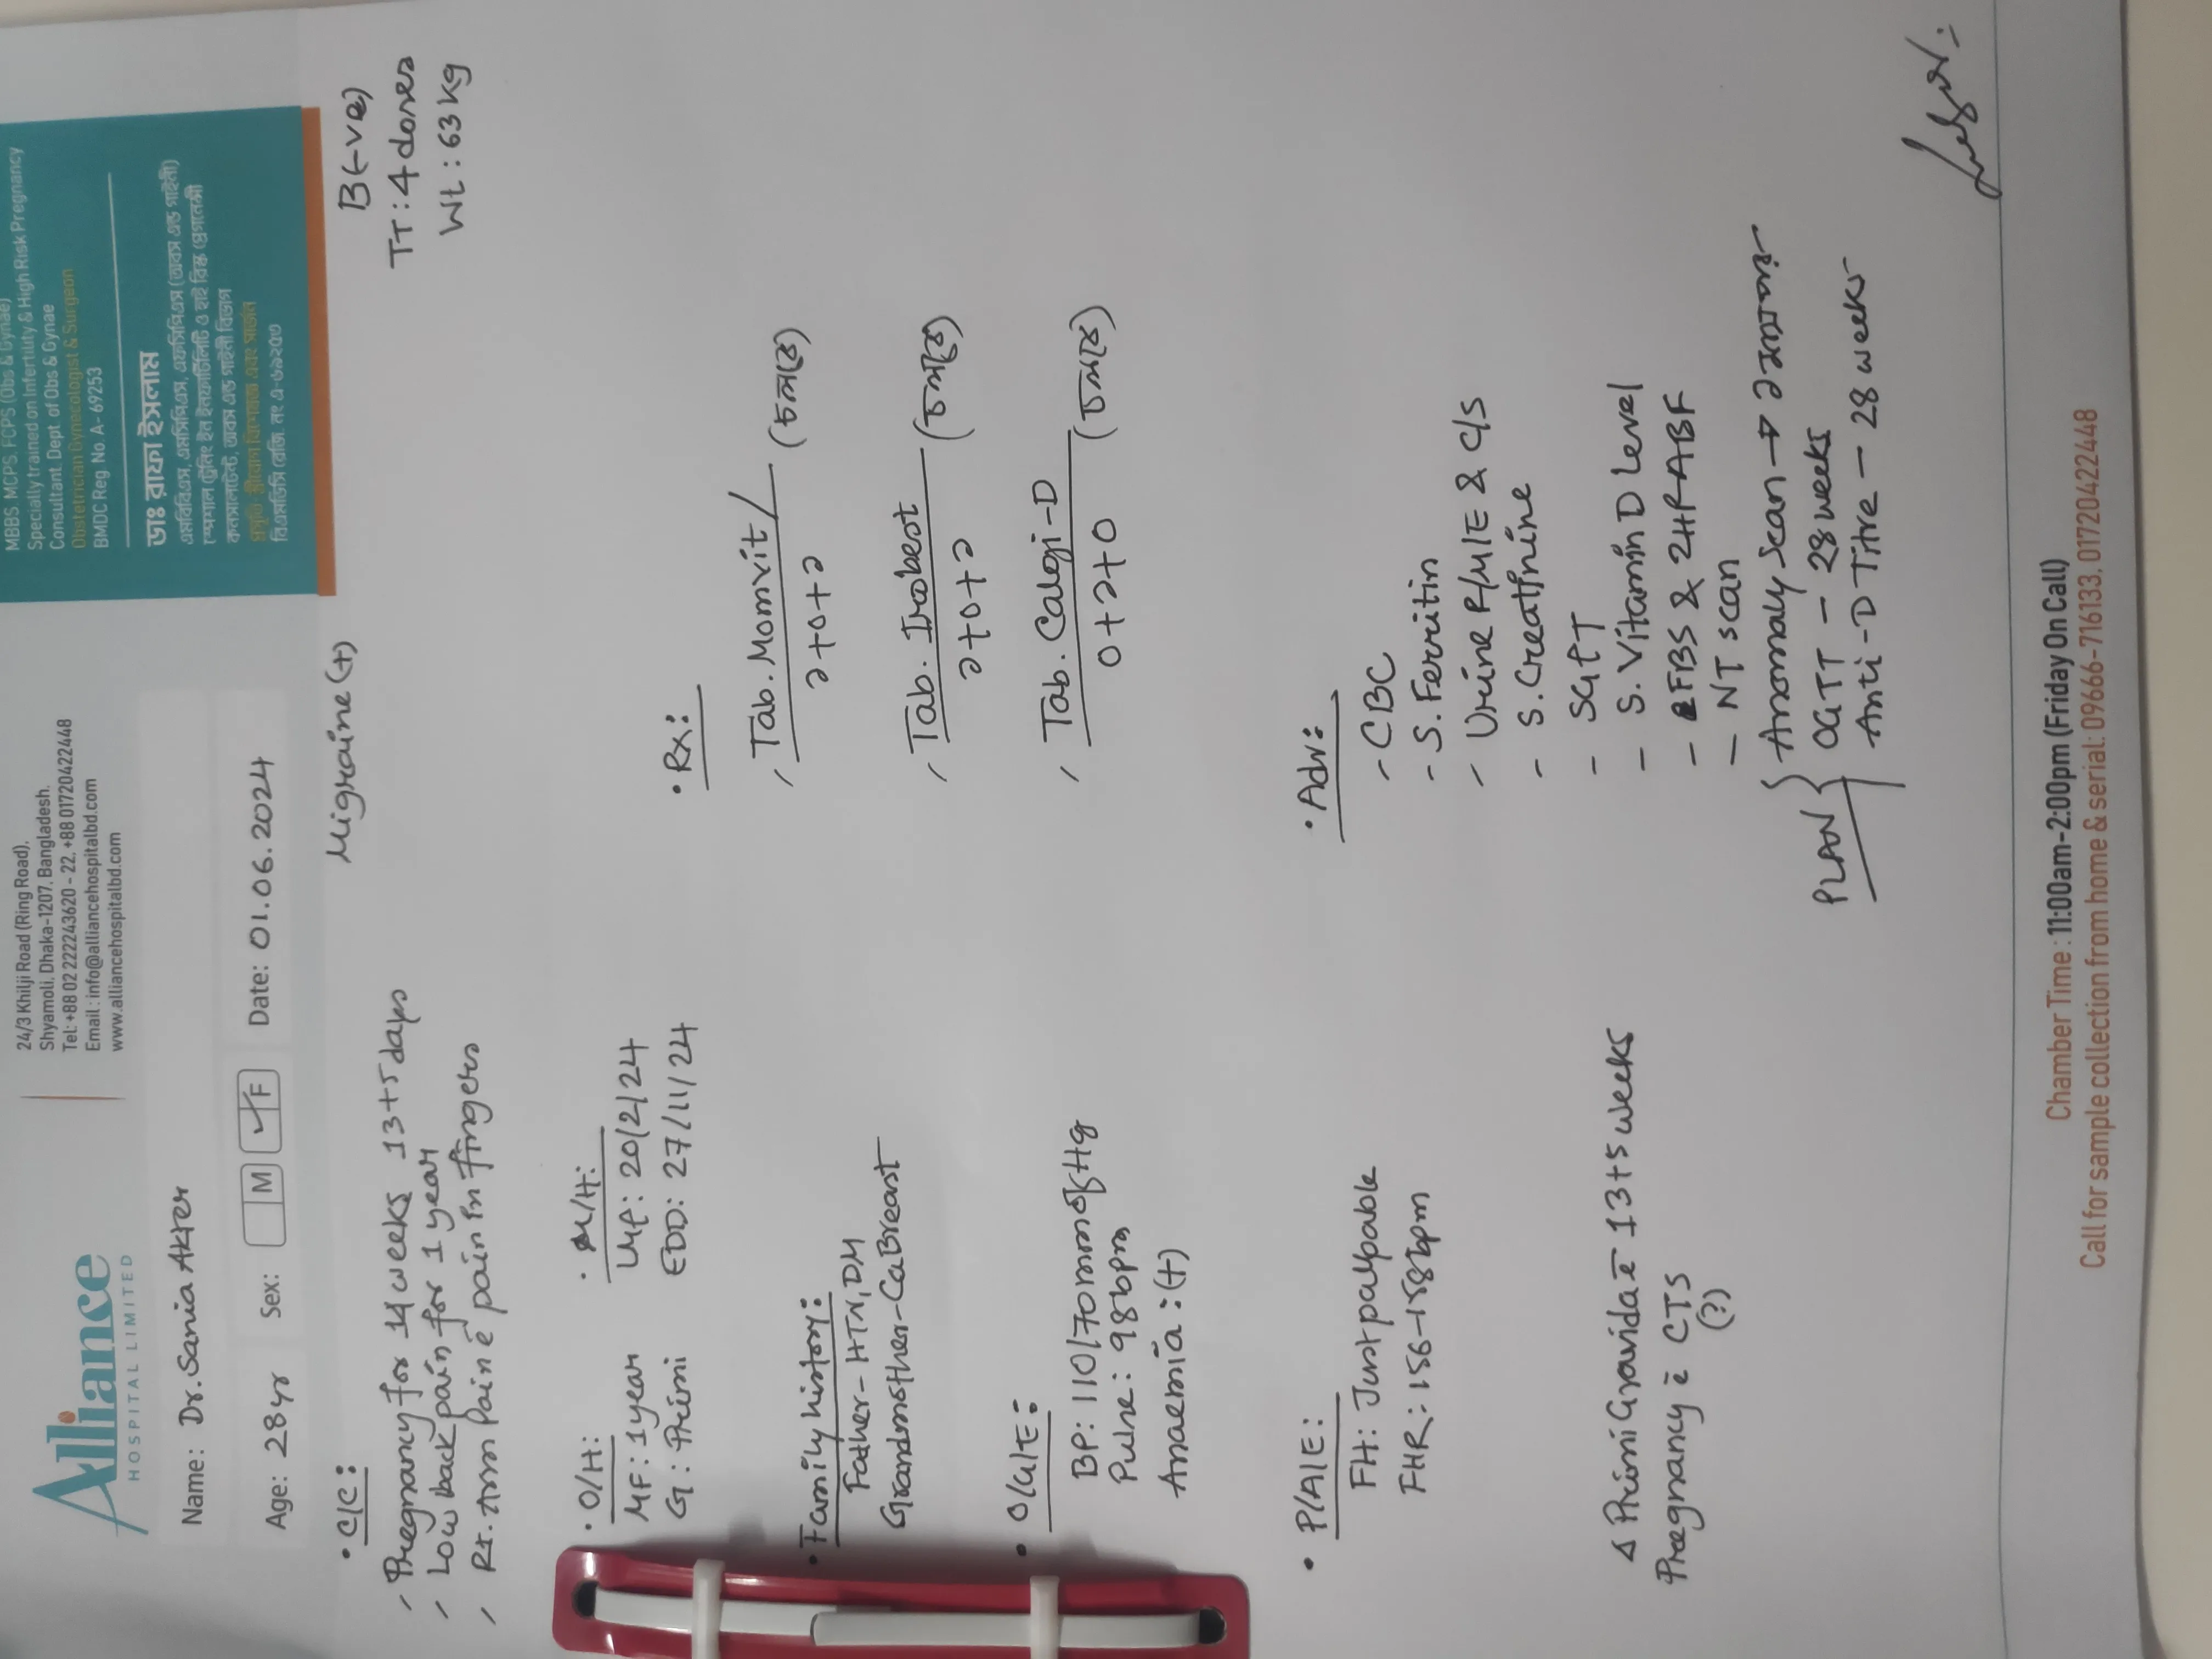 Alliance
HOSPITAL LIMITED
24/3 Khilji Road (Ring Road),
Shyamoli, Dhaka-1207, Bangladesh.
Tel: +88 02 222243620 - 22, +88 01720422448
Email : info@alliancehospitalbd.com
www.alliancehospitalbd.com
MBBS MCPS, FCPS (Obs & Gynae)
Specially trained on Infertility & High Risk Pregnancy
Consultant, Dept of Obs & Gynae
Obstetrician Gynecologist & Surgeon
BMDC Reg. No A- 69253
ডাঃ রাফা ইসলাম
এমবিবিএস, এমসিপিএস, এফসিপিএস (অবস এন্ড গাইনী)
স্পেশাল ট্রেনিং ইন ইনফার্টিলিটি ও হাই রিস্ক প্রেগনেন্সী
কনসালটেন্ট, অবস এন্ড গাইনী বিভাগ
প্রসূতি স্ত্রীরোগ বিশেষজ্ঞ এবং সার্জন
বিএমডিসি রেজি. নং এ-৬৯২৫৩
Name: Dr. Sania Akter
Age: 28yr Sex: M F Date: 01.06.2024
Migraine (+)
B(-ve)
TT : 4 doses
Wt : 63 kg
• C/C:
- Pregnancy for 14 weeks 13+5 days
- Low back pain for 1 year
- Rt. Arm Pain c̄ pain in fingers
• O/H:
MF: 1 year
G: Primi
• M/H:
LMP: 20/2/24
EDD: 27/11/24
• Family history:
Father - HTN, DM
Grandmother - Ca Breast
• O/G/E:
BP: 110/70 mm of Hg
Pulse: 98 bpm
Anaemia: (+)
• P/A/E:
FH: Just palpable
FHR: 156-158 bpm
Δ Primi Gravida c̄ 13+5 weeks
Pregnancy c̄ CTS
(?)
• Rx:
Tab. Momvit
১+০+১ (চলবে)
Tab. Irobest
১+০+১ (চলবে)
Tab. Calgi-D
০+১+০ (চলবে)
• Adv:
- CBC
- S. Ferritin
- Urine R/M/E & C/S
- S. Creatinine
- SGPT
- S. Vitamin D Level
- FBS & 2HPABF
- NT scan
PLAN
Anomaly scan →
OGTT - 28 weeks
Anti-D Titre - 28 weeks
Chamber Time : 11:00am-2:00pm (Friday On Call)
Call for sample collection from home & serial: 09666-716133, 01720422448